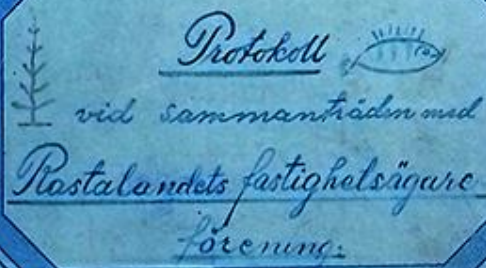 Protokoll
vid sammanträden med
Rastalandets fastighetsägare
förening.